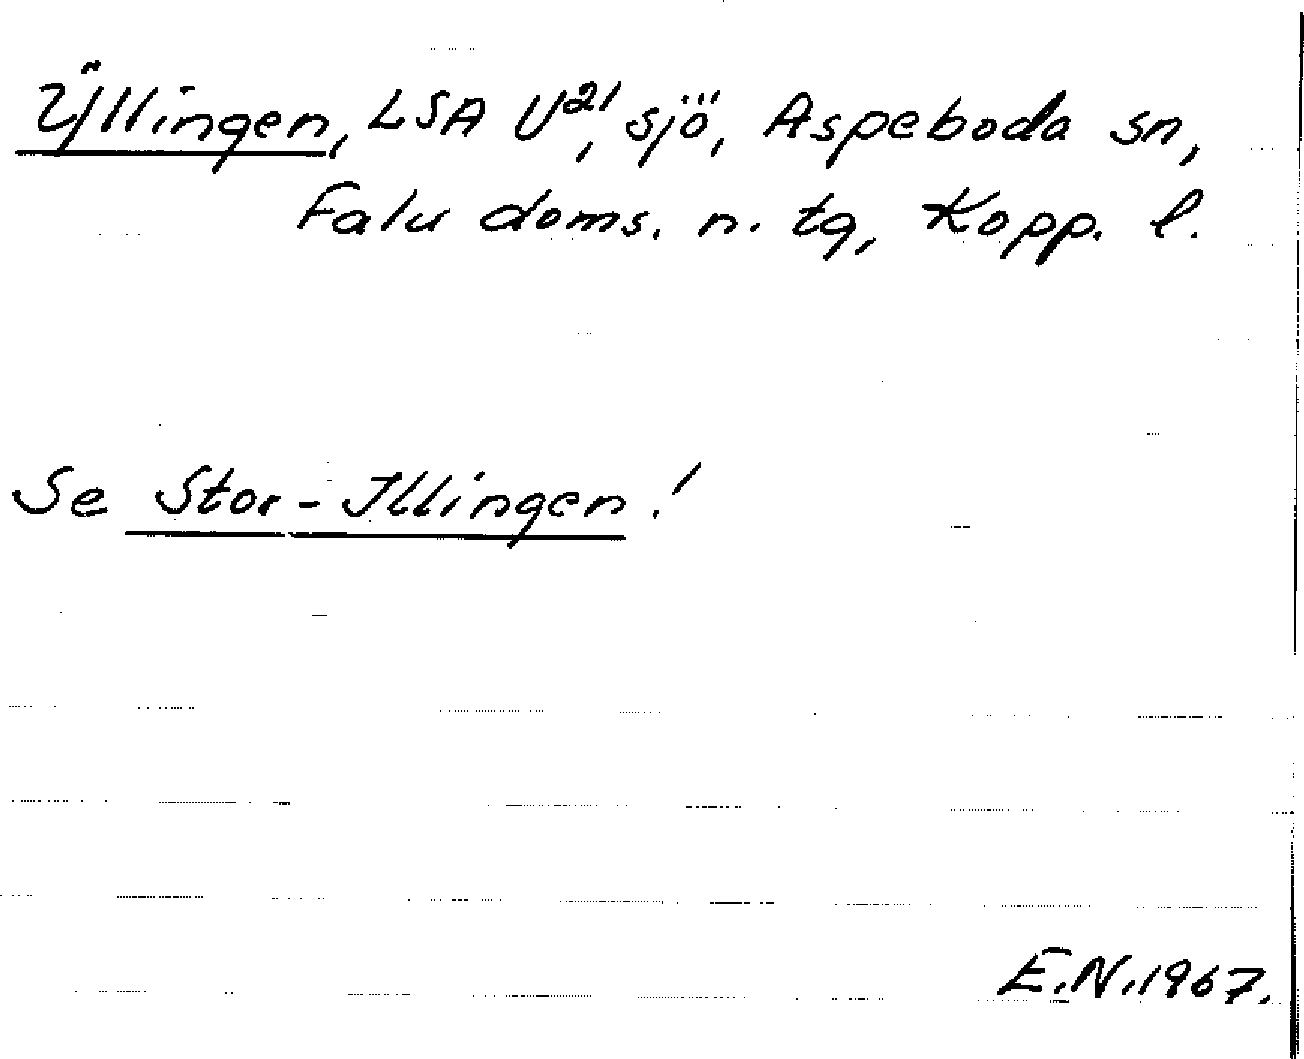 Ÿllingen, LSA U21, sjö, Aspeboda sn,
Falu doms. n. tg, Kopp. l.
Se Stor-Illingen!
E.N. 1967.